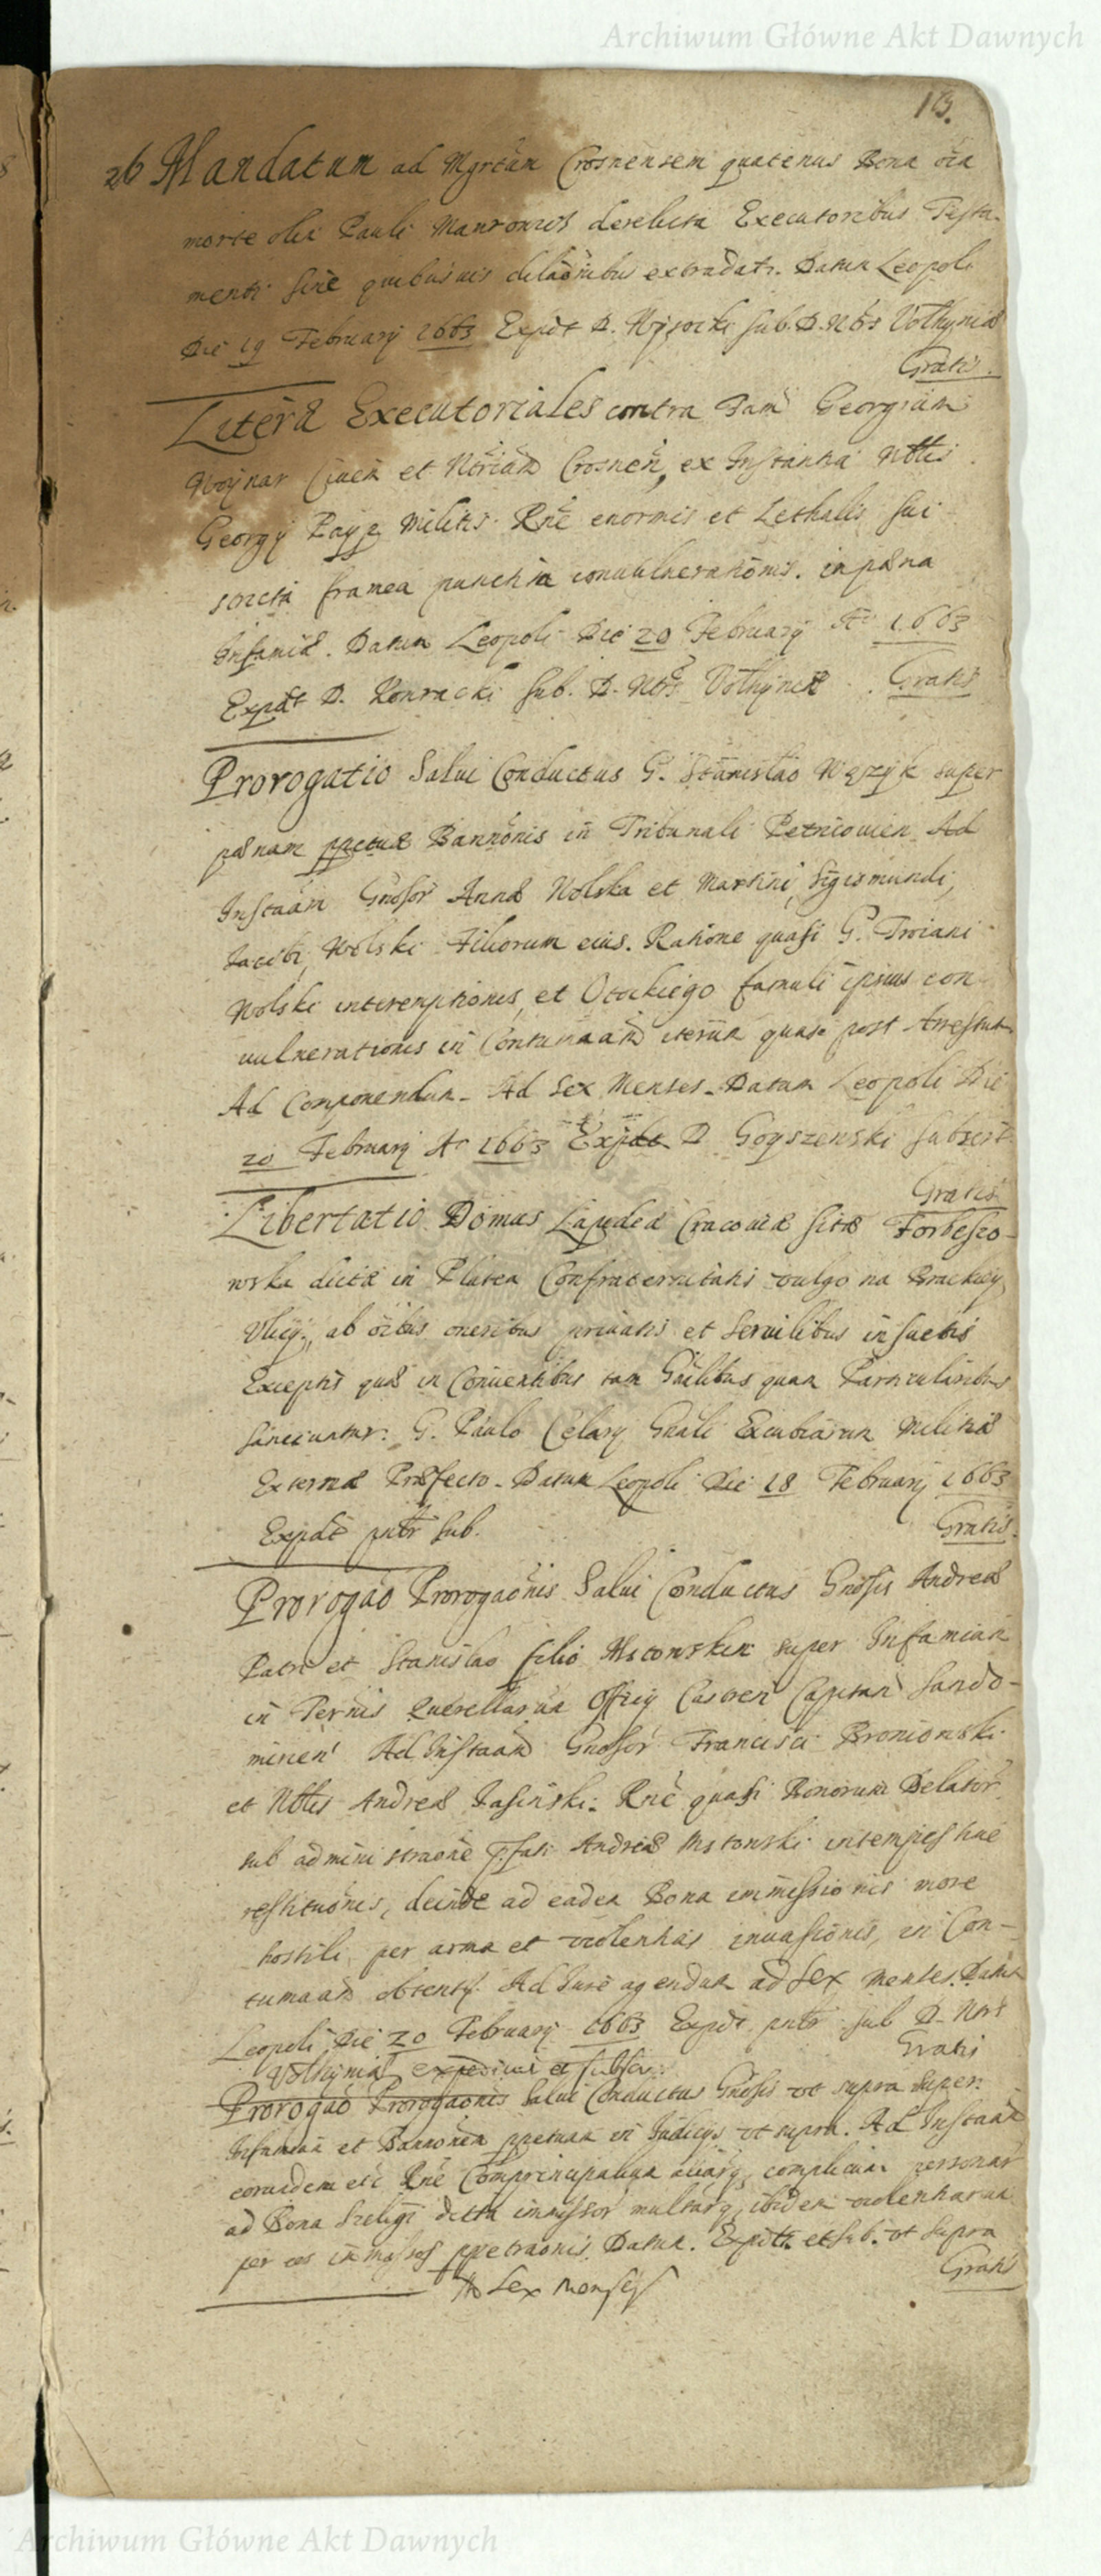 Archiwum Główne Akt Dawnych
113.
26 Mandatum ad Mgrtum Crosnensem quatenus Bona oia
morte olim Pauli derelicta Executoribus Testa-
menti sine quibusuis dilaonibus extradat. Datum Leopoli
Die 19 February 1663 Expdt D. Wysocki sub. D. Ntrs Volhyniæ
Gratis.
Literæ Executoriales contra Fam Georgium
Woynar Ciuem et Crosnen, ex Instantia Nblis
Georgy Militis. Rne enormis et Lethalis sui
framea conuulnerationis. in pæna
Infamiæ. Datum Leopoli Die 20 February A 1663
Expdt D. Konracki Sub. D. Ntrs Volhyniæ Gratis
Prorogatio Salui Conductus G. Stanislao Wężyk super
pænam ppetuæ Bannonis in Tribunali Petricouien Ad
Instaam Gnosor Annæ Wolska et Martini, Sigismundi,
Jacobi, Wolski Filiorum eius. Ratione quasi G. Troiani
Wolski interemptionis, et famuli ipsius con-
uulnerationis in Contumaam iterum quasi post Arrestum
Ad Componendum. Ad Sex Menses. Datum Leopoli Die
20 February A 1663 Expdt D Subscrt.
Gratis
Libertatio Domus Lapideæ Cracouiæ sitæ
wska dictæ in Platea Confraternitatis vulgo na Brackiey
Vlicy, ab oibus oneribus priuatis et seruilibus insuetis
Exceptis quæ in Conuentibus tam Gnalibus quam Particularibus
sanciuntur. G. Paulo Celary Gnali Excubiarum Militiæ
Externæ Præfecto. Datum Leopoli Die 18 February 1663
Expdt sub. Gratis.
Prorogao Prorogaonis Salui Conductus Gnosis Andreæ
Patri et Stanislao filio super Infamiam
in Termis Querellarum Officy Castren Capitan Sando-
mirien Ad Instaam Gnosor Francisci Bronionski
et Nblis Andreæ Jasinski. Rne quasi Bonorum
sub administraone Andreæ Mstowski intempestiue
restituonis, deinde ad eadem Bona immissionis more
hostili per arma et violentias inuasionis, in Con-
tumaam obtent. Ad Jure agendum ad Sex Menses. Datum
Leopoli Die 20 February 1663 Expdt sub D. Ntrs
Volhyniæ expediui et subscr. Gratis
Prorogao Prorogaonis Salui Conductus Gnosis vt supra super
Infamiam et Bannonem ppetuam in Judicys vt supra. Ad Instaam
eorundem etc Rne Comprincipalium complicum personar
ad Bona dicta ibidem violentiarum
per eos ppetraonis. Datum. Expdt et sub. vt supra
Ad Sex Menses Gratis
Archiwum Główne Akt Dawnych